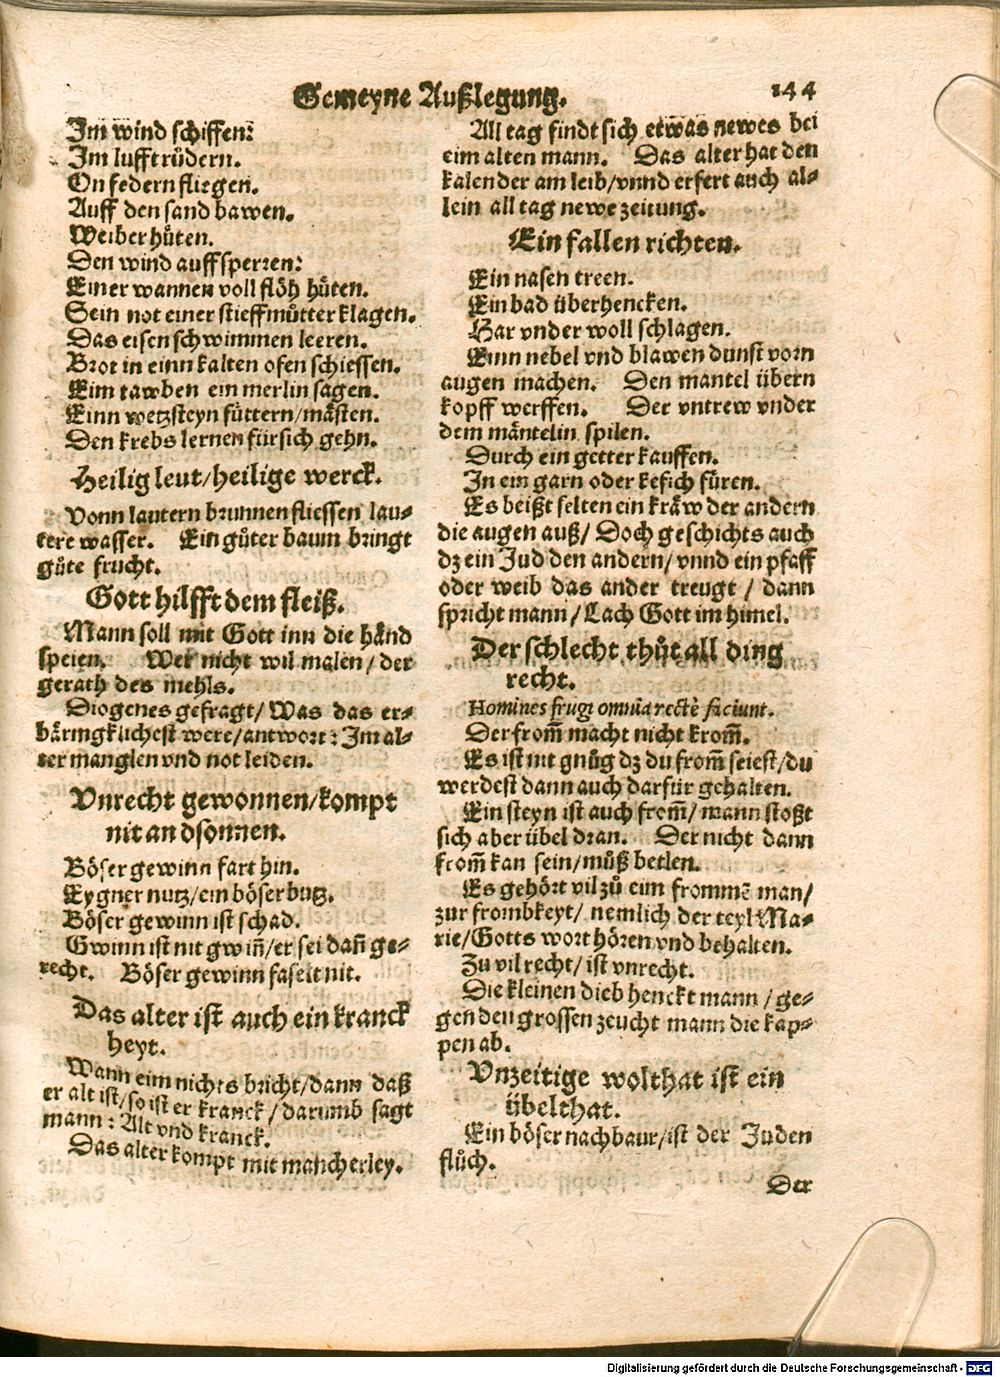 Gemeyne Außlegung. 144
Im wind schiffen:
Im lufft růdern.
On federn fliegen.
Auff den sand bawen.
Weiber hůten.
Den wind auffsperren:
Einer wannen voll flöh hůten.
Sein not einer stieffmůtter klagen.
Das eisen schwimmen leeren.
Brot in einn kalten ofen schiessen.
Eim tawben ein merlin sagen.
Einn wetzsteyn füttern/mästen.
Den krebs lernen fürsich gehn.
Heilig leut/heilige werck.
Vonn lautern brunnen fliessen lau-
tere wasser. Ein gůter baum bringt
gůte frucht.
Gott hilfft dem fleiß.
Mann soll mit Gott inn die händ
speien. Wer nicht wil malen/der
gerath des mehls.
Diogenes gefragt/Was das er-
bärmgklichest were/antwort: Im al-
ter manglen vnd not leiden.
Vnrecht gewonnen/kompt
nit an dsonnen.
Böser gewinn fart hin.
Eygner nutz/ein böser butz.
Böser gewinn ist schad.
Gwinn ist nit gwiñ/er sei dañ ge-
recht. Böser gewinn faselt nit.
Das alter ist auch ein kranck
heyt.
Wann eim nichts bricht/dann daß
er alt ist/so ist er kranck/darumb sagt
mann: Alt vnd kranck.
Das alter kompt mit mancherley.
All tag findt sich etwas newes bei
eim alten mann. Das alter hat den
kalender am leib/vnnd erfert auch al-
lein all tag newe zeitung.
Ein fallen richten.
Ein nasen treen.
Ein bad überhencken.
Har vnder woll schlagen.
Einn nebel vnd blawen dunst vorn
augen machen. Den mantel übern
kopff werffen. Der vntrew vnder
dem mäntelin spilen.
Durch ein getter kauffen.
In ein garn oder kefich füren.
Es beißt selten ein kräw der andern
die augen auß/Doch geschichts auch
dz ein Jud den andern/vnnd ein pfaff
oder weib das ander treugt/dann
spricht mann/Lach Gott im himel.
Der schlecht thůt all ding
recht.
Homines frugi omnia rectè faciunt.
Der from̃ macht nicht krom̃.
Es ist nit gnůg dz du from̃ seiest/du
werdest dann auch darfür gehalten.
Ein steyn ist auch from̃/mann stoßt
sich aber übel dran. Der nicht dann
from̃ kan sein/můß betlen.
Es gehört vil zů eim frommẽ man/
zur frombkeyt/nemlich der teyl Ma-
rie/Gotts wort hören vnd behalten.
Zu vil recht/ist vnrecht.
Die kleinen dieb henckt mann/ge-
gen den grossen zeucht mann die kap-
pen ab.
Vnzeitige wolthat ist ein
übelthat.
Ein böser nachbaur/ist der Juden
flůch.
Der
Digitalisierung gefördert durch die Deutsche Forschungsgemeinschaft - DFG